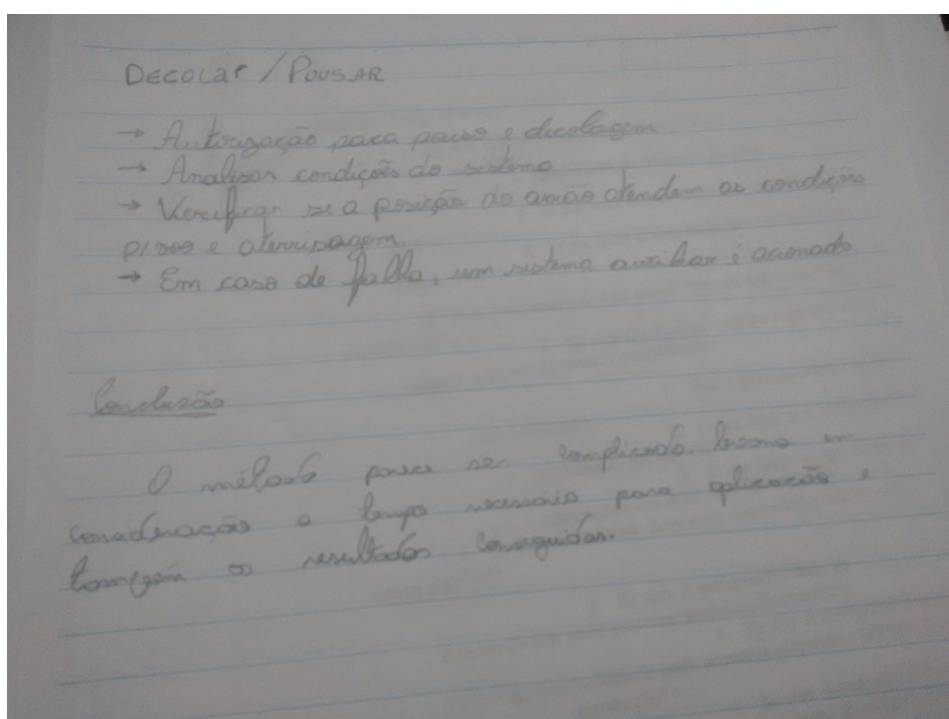 Decolar / Pousar
→ Autorização para pouso e decolagem
→ Analisar condições do sistema
→ Verificar se a posição do avião atendem as condições
e aterrisagem.
→ Em caso de falha, um sistema auxiliar é acionado
Conclusão
O método parece ser complicado levano em
consideração o tempo necessário para aplicação e
também os resultados conseguidos.